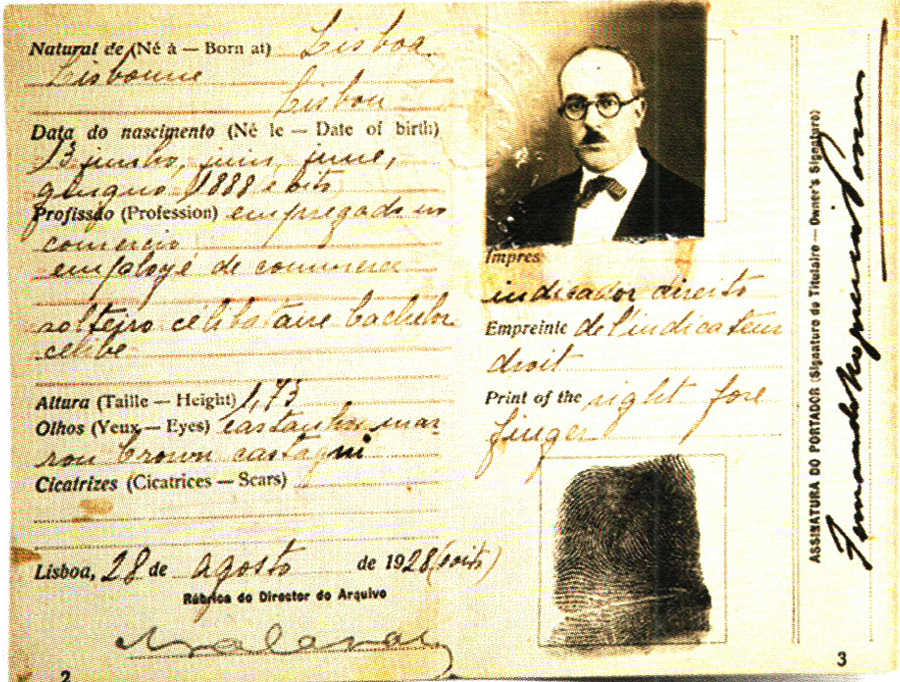 Natural de (Né à — Born at) Lisboa
Lisbonne
Lisbon
Data do nascimento (Né le — Date of birth)
13 junho, juin, june,
giugno 1888 e oito
Profissão (Profession) empregado no
comercio
employé de commerce
solteiro célibataire bachelor
celibe
Altura (Taille — Height) 1,73
Olhos (Yeux — Eyes) castanhos mar
ron brown castagni
Cicatrizes (Cicatrices — Scars)
Lisboa, 28 de agosto de 1928 (oito)
Rúbrica do Director do Arquivo
2
Impres
indicador direito
Empreinte de l'indicateur
droit
Print of the right fore
finger
ASSINATURA DO PORTADOR (Signature du Titulaire — Owner's Signature)
Fernando Nogueira Pessoa
3